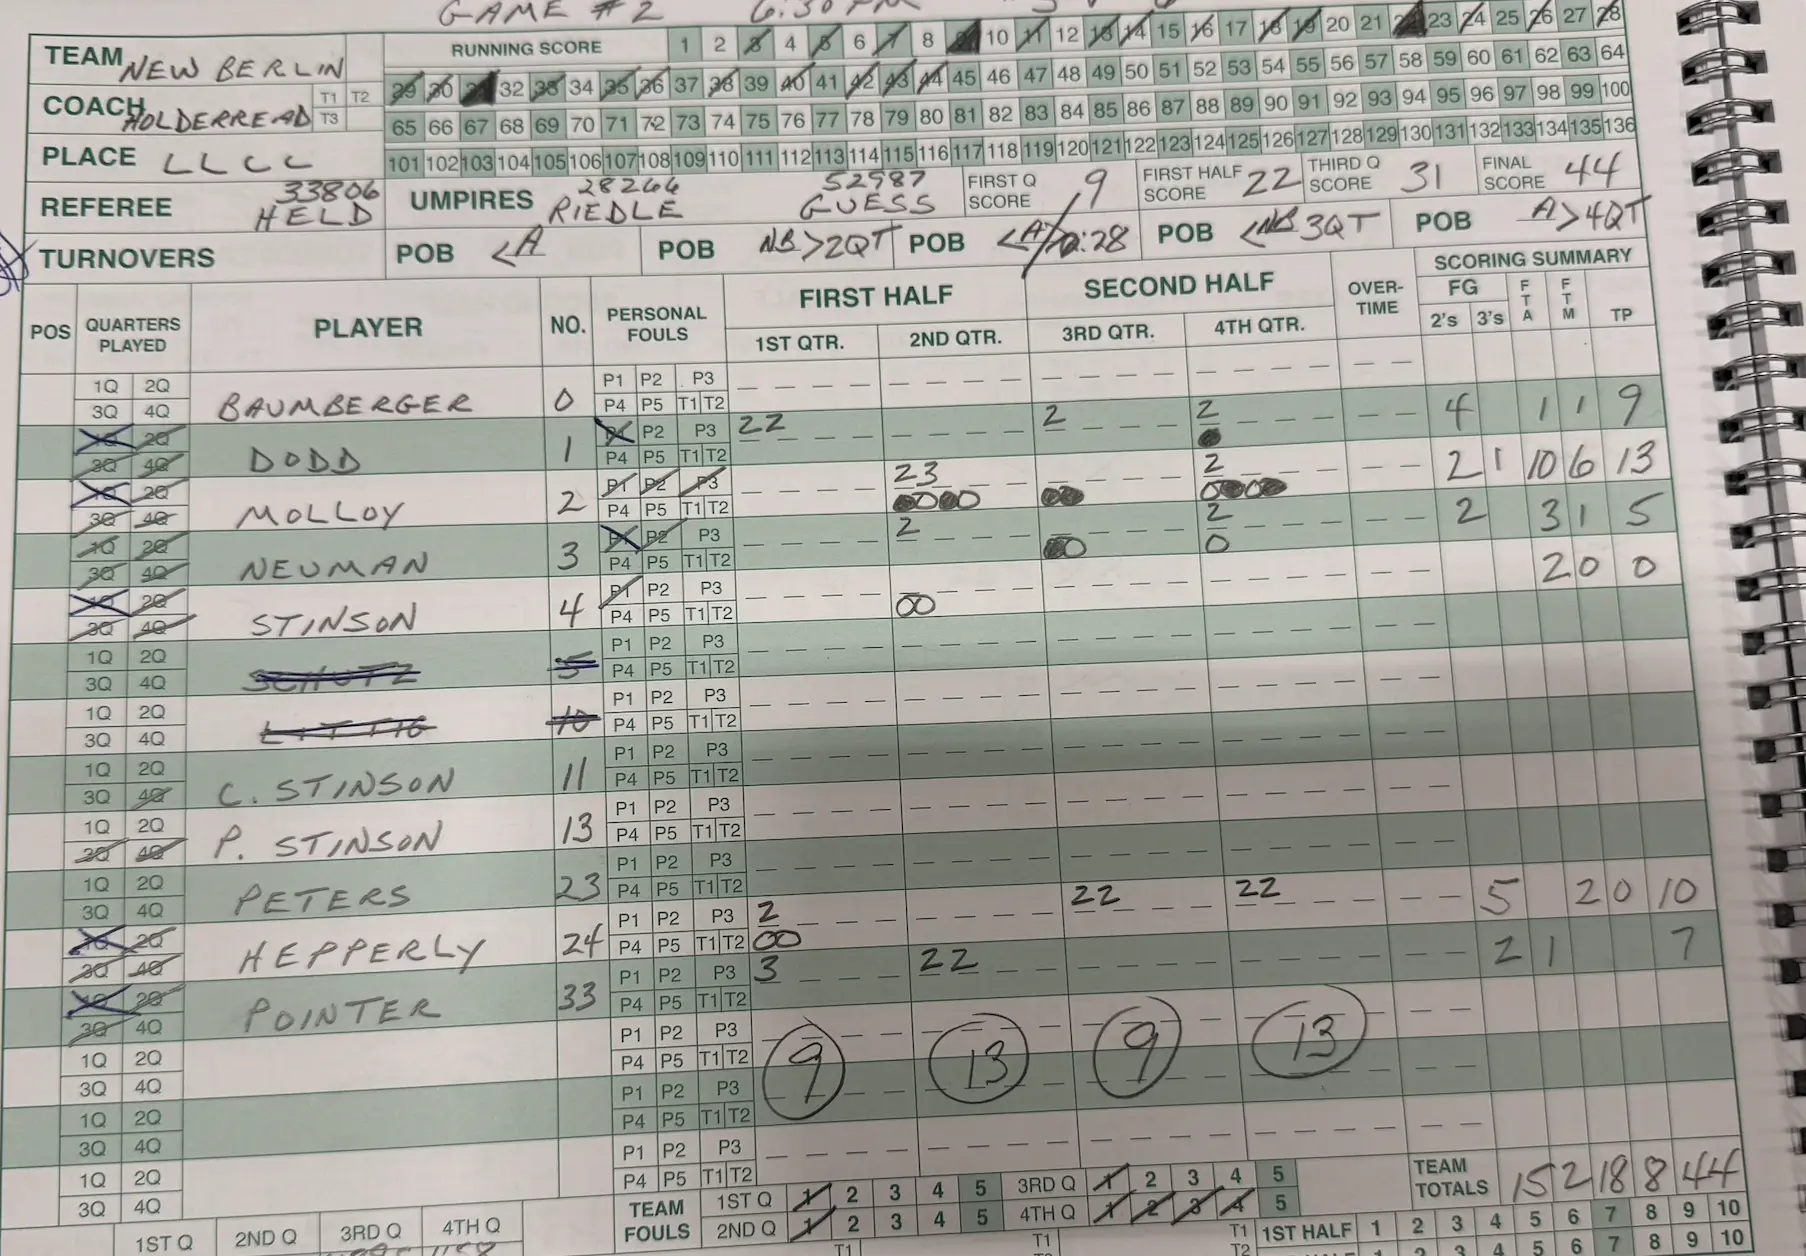 GAME #2 6:30 PM
TEAM NEW BERLIN
RUNNING SCORE 1 2 3 4 5 6 7 8 9 10 11 12 13 14 15 16 17 18 19 20 21 22 23 24 25 26 27 28
29 30 31 32 33 34 35 36 37 38 39 40 41 42 43 44 45 46 47 48 49 50 51 52 53 54 55 56 57 58 59 60 61 62 63 64
COACH HOLDERREAD T1 T2 T3
65 66 67 68 69 70 71 72 73 74 75 76 77 78 79 80 81 82 83 84 85 86 87 88 89 90 91 92 93 94 95 96 97 98 99 100
PLACE LLCC
101 102 103 104 105 106 107 108 109 110 111 112 113 114 115 116 117 118 119 120 121 122 123 124 125 126 127 128 129 130 131 132 133 134 135 136
REFEREE 33806 HELD
UMPIRES 28266 RIEDLE 52987 GUESS
FIRST Q SCORE 9
FIRST HALF SCORE 22
THIRD Q SCORE 31
FINAL SCORE 44
TURNOVERS
POB <A
POB NB>2QT
POB <A/0:28
POB <NB3QT
POB A>4QT
POS
QUARTERS PLAYED
PLAYER
NO.
PERSONAL FOULS
FIRST HALF
1ST QTR. 2ND QTR.
SECOND HALF
3RD QTR. 4TH QTR.
OVER-TIME
SCORING SUMMARY
FG
2's 3's FTA FTM TP
1Q 2Q 3Q 4Q BAUMBERGER 0 P1 P2 P3 P4 P5 T1 T2
1Q 2Q 3Q 4Q DODD 1 P1 P2 P3 P4 P5 T1 T2 22 2 2 4 1 1 9
1Q 2Q 3Q 4Q MOLLOY 2 P1 P2 P3 P4 P5 T1 T2 23 2 2 1 10 6 13
1Q 2Q 3Q 4Q NEUMAN 3 P1 P2 P3 P4 P5 T1 T2 2 2 2 3 1 5
1Q 2Q 3Q 4Q STINSON 4 P1 P2 P3 P4 P5 T1 T2 2 0 0
1Q 2Q 3Q 4Q SCHUTZ 5 P1 P2 P3 P4 P5 T1 T2
1Q 2Q 3Q 4Q LITTIG 10 P1 P2 P3 P4 P5 T1 T2
1Q 2Q 3Q 4Q C. STINSON 11 P1 P2 P3 P4 P5 T1 T2
1Q 2Q 3Q 4Q P. STINSON 13 P1 P2 P3 P4 P5 T1 T2
1Q 2Q 3Q 4Q PETERS 23 P1 P2 P3 P4 P5 T1 T2
1Q 2Q 3Q 4Q HEPPERLY 24 P1 P2 P3 P4 P5 T1 T2 2 22 22 5 2 0 10
1Q 2Q 3Q 4Q POINTER 33 P1 P2 P3 P4 P5 T1 T2 3 22 2 1 7
1Q 2Q 3Q 4Q P1 P2 P3 P4 P5 T1 T2 9 13 9 13
1Q 2Q 3Q 4Q P1 P2 P3 P4 P5 T1 T2
1Q 2Q 3Q 4Q P1 P2 P3 P4 P5 T1 T2
TEAM TOTALS 15 2 18 8 44
TEAM FOULS
1ST Q 1 2 3 4 5 3RD Q 1 2 3 4 5
2ND Q 1 2 3 4 5 4TH Q 1 2 3 4 5
1ST Q 2ND Q 3RD Q 4TH Q
T1 T1 T1 T2
1ST HALF 1 2 3 4 5 6 7 8 9 10
3 4 5 6 7 8 9 10